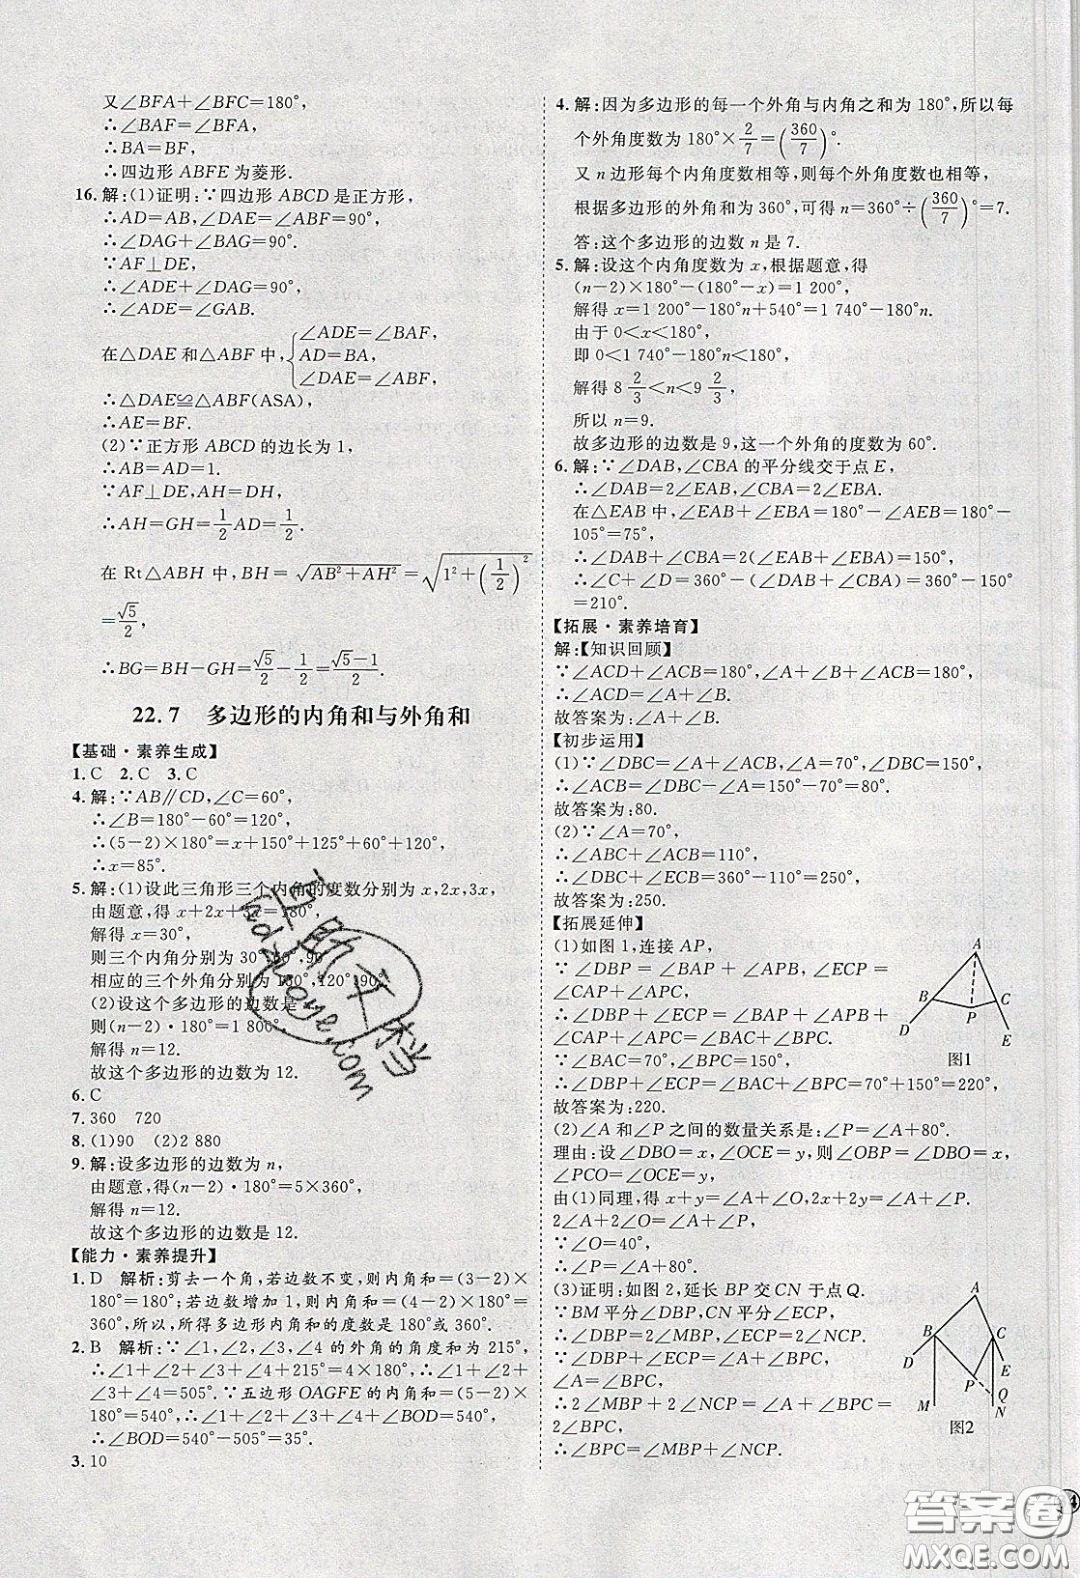 又∠BFA+∠BFC=180°,
∴∠BAF=∠BFA,
∴BA=BF,
∴四边形 ABFE 为菱形.
16.解:(1)证明:∵四边形 ABCD 是正方形,
∴AD=AB,∠DAE=∠ABF=90°,
∴∠DAG+∠BAG=90°.
∵AF⊥DE,
∴∠DAG+∠ADE=90°,
∴∠ADE=∠GAB.
在△DAE 和△ABF 中,{∠ADE=∠BAF,
AD=BA,
∠DAE=∠ABF,
∴△DAE≌△ABF(ASA).
∴AE=BF.
(2)∵正方形 ABCD 的边长为 1,
∴AB=AD=1.
∵AF⊥DE,AH=DH,
∴AH=GH=1/2 AD=1/2.
在 Rt△ABH 中,BH=√(AB²+AH²)=√(1²+(1/2)²)
=√5/2,
∴BG=BH-GH=√5/2-1/2=(√5-1)/2.
22.7 多边形的内角和与外角和
【基础·素养生成】
1.C 2.C 3.C
4.解:∵AB∥CD,∠C=60°,
∴∠B=180°-60°=120°,
∴(5-2)×180°=x+150°+125°+60°+120°,
∴x=85°.
5.解:(1)设此三角形三个内角的度数分别为 x,2x,3x,
由题意,得 x+2x+3x=180°,
解得 x=30°,
则三个内角分别为 30°,60°,90°
相应的三个外角分别为 150°,120°,90°.
(2)设这个多边形的边数是
则(n-2)·180°=1 800°
解得 n=12.
故这个多边形的边数为 12.
6.C
7.360 720
8.(1)90 (2)2 880
9.解:设多边形的边数为 n,
由题意,得(n-2)·180°=5×360°,
解得 n=12.
故这个多边形的边数是 12.
【能力·素养提升】
1.D 解析:剪去一个角,若边数不变,则内角和=(3-2)×
180°=180°;若边数增加 1,则内角和=(4-2)×180°=
360°,所以,所得多边形内角和的度数是 180°或 360°.
2.B 解析:∵∠1,∠2,∠3,∠4 的外角的角度和为 215°,
∴∠1+∠2+∠3+∠4+215°=4×180°,∴∠1+∠2+
∠3+∠4=505°.∵五边形 OAGFE 的内角和=(5-2)×
180°=540°,∴∠1+∠2+∠3+∠4+∠BOD=540°,
∴∠BOD=540°-505°=35°.
3.10
4.解:因为多边形的每一个外角与内角之和为 180°,所以每
个外角度数为 180°×2/7=(360/7)°.
又 n 边形每个内角度数相等,则每个外角度数也相等,
根据多边形的外角和为 360°,可得 n=360°÷(360/7)°=7.
答:这个多边形的边数 n 是 7.
5.解:设这个内角度数为 x,根据题意,得
(n-2)×180°-(180°-x)=1 200°,
解得 x=1 200°-180°n+540°=1 740°-180°n,
由于 0<x<180°,
即 0<1 740°-180°n<180°,
解得 8 2/3<n<9 2/3,
所以 n=9.
故多边形的边数是 9,这一个外角的度数为 60°.
6.解:∵∠DAB,∠CBA 的平分线交于点 E,
∴∠DAB=2∠EAB,∠CBA=2∠EBA.
在△EAB 中,∠EAB+∠EBA=180°-∠AEB=180°-
105°=75°,
∴∠DAB+∠CBA=2(∠EAB+∠EBA)=150°,
∴∠C+∠D=360°-(∠DAB+∠CBA)=360°-150°
=210°.
【拓展·素养培育】
解:【知识回顾】
∵∠ACD+∠ACB=180°,∠A+∠B+∠ACB=180°,
∴∠ACD=∠A+∠B.
故答案为:=.
【初步运用】
(1)∵∠DBC=∠A+∠ACB,∠A=70°,∠DBC=150°,
∴∠ACB=∠DBC-∠A=150°-70°=80°.
故答案为:80.
(2)∵∠A=70°,
∴∠ABC+∠ACB=110°,
∴∠DBC+∠ECB=360°-110°=250°.
故答案为:250.
【拓展延伸】
(1)如图 1,连接 AP,
∵∠DBP=∠BAP+∠APB,∠ECP=
∠CAP+∠APC,
∴∠DBP+∠ECP=∠BAP+∠APB+
∠CAP+∠APC=∠BAC+∠BPC.
∵∠BAC=70°,∠BPC=150°,
∴∠DBP+∠ECP=∠BAC+∠BPC=70°+150°=220°,
故答案为:220.
A
B
C
P
D
E
图1
(2)∠A 和∠P 之间的数量关系是:∠P=∠A+80°.
理由:设∠DBO=x,∠OCE=y,则∠OBP=∠DBO=x,
∠PCO=∠OCE=y,
由(1)同理,得 x+y=∠A+∠O,2x+2y=∠A+∠P.
2∠A+2∠O=∠A+∠P,
∵∠O=40°,
∴∠P=∠A+80°.
(3)证明:如图 2,延长 BP 交 CN 于点 Q.
∵BM 平分∠DBP,CN 平分∠ECP,
∴∠DBP=2∠MBP,∠ECP=2∠NCP.
∵∠DBP+∠ECP=∠A+∠BPC,
∠A=∠BPC,
∴2∠MBP+2∠NCP=∠A+∠BPC=
2∠BPC,
∴∠BPC=∠MBP+∠NCP.
A
B
C
D
E
P
Q
M
N
图2
答案圈
MXQE.COM